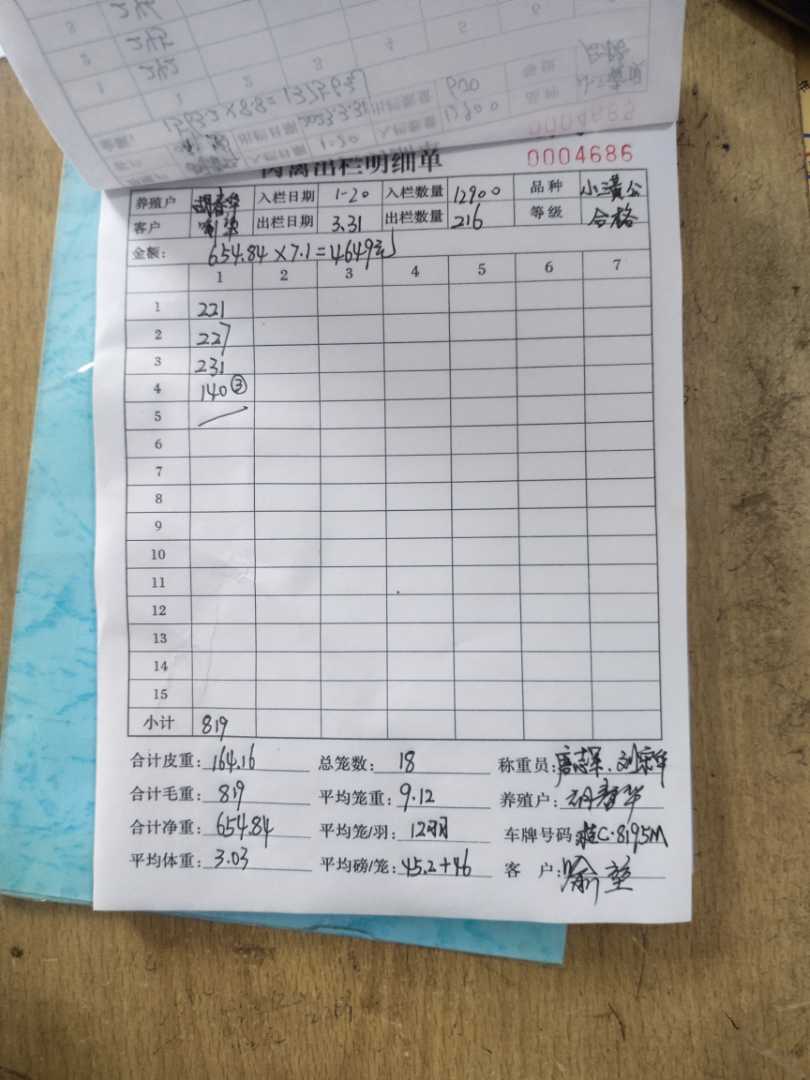 肉禽出栏明细单 0004686
养殖户 胡春华 入栏日期 1-20 入栏数量 12900 品种 小黄公
客户 喻堃 出栏日期 3.31 出栏数量 216 等级 合格
金额: 654.84×7.1=4649元
1 2 3 4 5 6 7
1 221
2 227
3 231
4 140③
5
6
7
8
9
10
11
12
13
14
15
小计 819
合计皮重: 164.16 总笼数: 18 称重员:
合计毛重: 819 平均笼重: 9.12 养殖户: 胡春华
合计净重: 654.84 平均笼/羽: 12羽 车牌号码 C·8195M
平均体重: 3.03 平均磅/笼: 45.2+46 客户: 喻堃